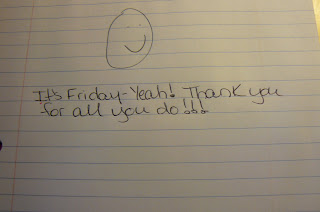 It's Friday-Yeah! Thank you
for all you do!!!